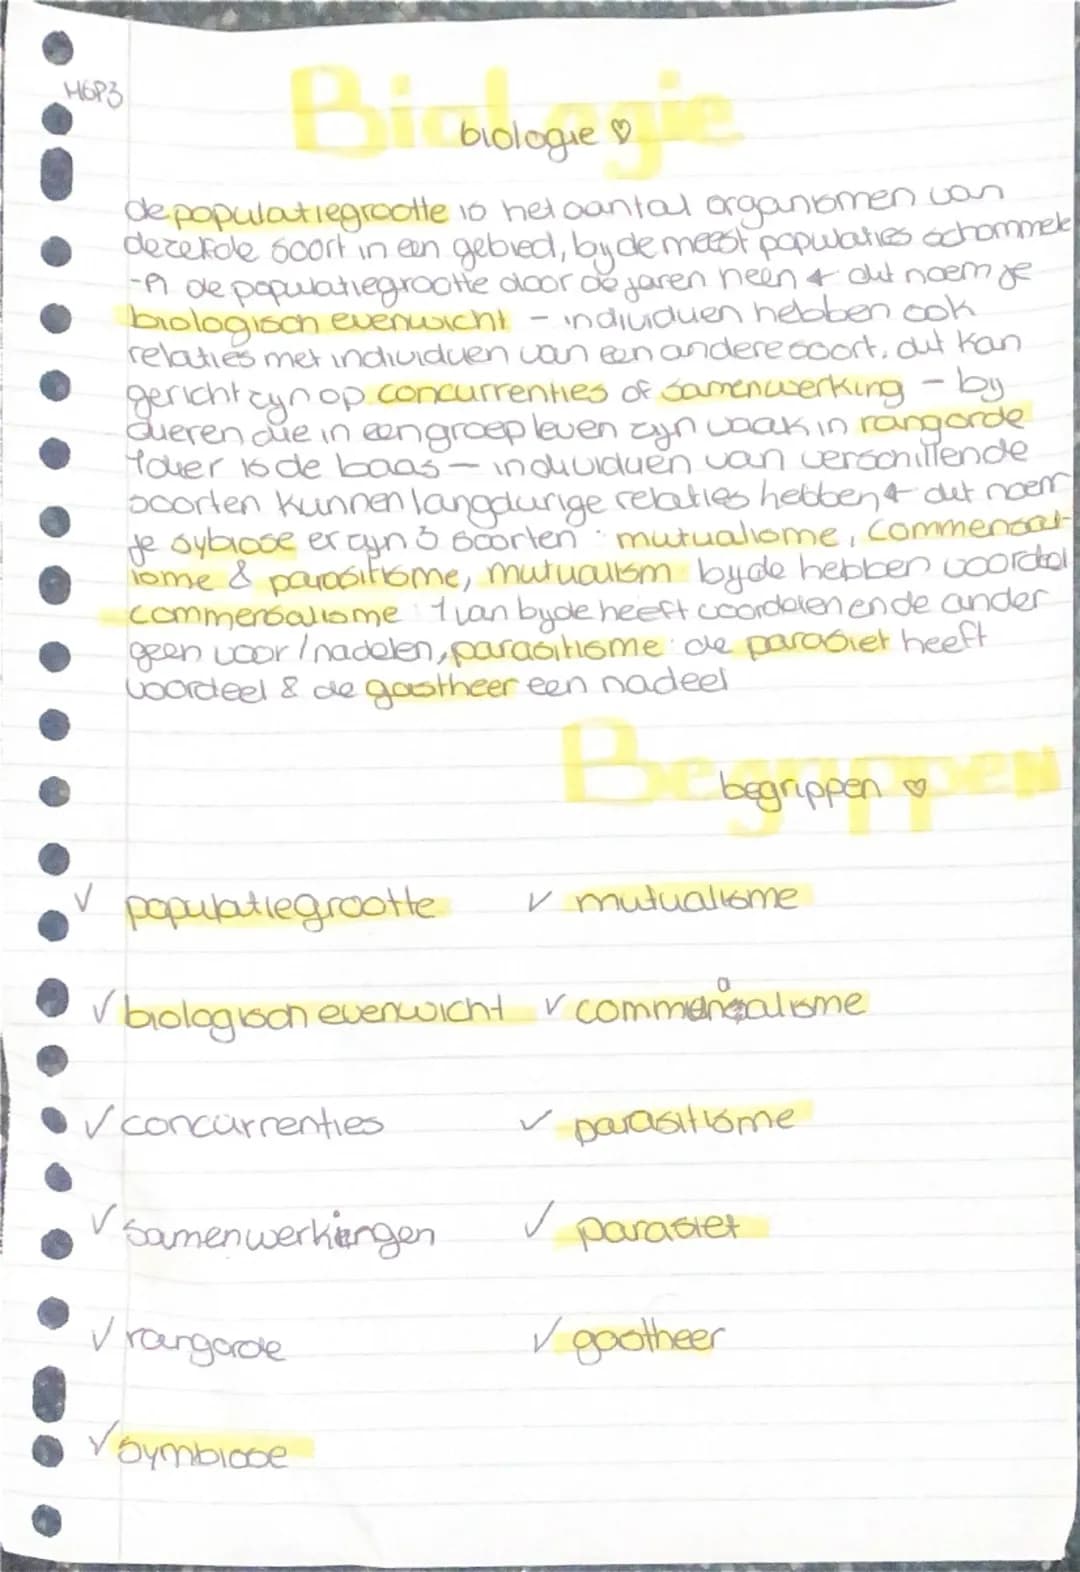 H6P3
Biologie
biologie ♡
de populatiegrootte is het aantal organismen van
dezelfde soort in een gebied, bij de meest populaties schommel
-t de populatiegrootte door de jaren heen & dit noem je
biologisch evenwicht - individuen hebben ook
relaties met individuen van een andere soort, dit kan
gericht zijn op concurrenties of samenwerking - bij
dieren die in een groep leven zijn vaak in rangorde
1 dier is de baas - individuen van verschillende
soorten kunnen langdurige relaties hebben & dit noem
je sybiose er zijn 3 soorten : mutualisme, commensal-
isme & parasitisme, mutualism bijde hebben voordeel
commensalisme : 1 van bijde heeft voordelen en de ander
geen voor/nadelen, parasitisme : de parasiet heeft
voordeel & de gastheer een nadeel
Begrippen
begrippen ♡
✓ populatiegrootte ✓ mutualisme
✓ biologisch evenwicht ✓ commensalisme
✓ concurrenties ✓ parasitisme
✓ samenwerkingen ✓ parasiet
✓ rangorde ✓ gastheer
✓ symbiose